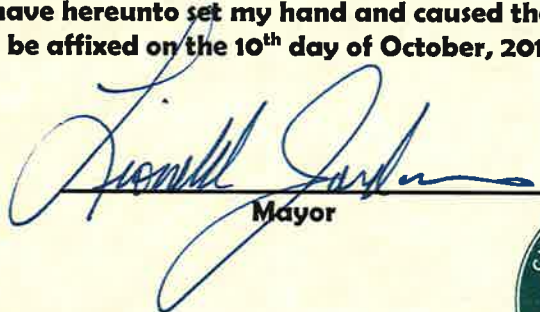 have hereunto set my hand and caused the
be affixed on the 10th day of October, 201
Mayor